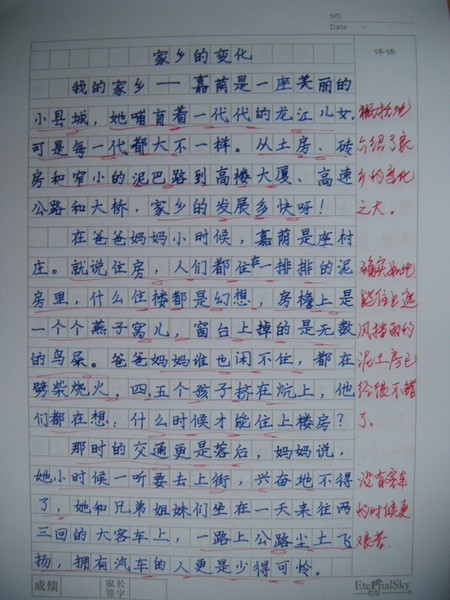 NO.
Date
家乡的变化
评语
我的家乡——嘉荫是一座美丽的
小县城,她哺育着一代代的龙江儿女,
可是每一代都大不一样。从土房、砖
房和窄小的泥巴路到高楼大厦、高速
公路和大桥,家乡的发展多快呀!
概括地
介绍了家
乡的变化
之大。
在爸爸妈妈小时候,嘉荫是座村
庄。就说住房,人们都住在一排排的泥
房里,什么住楼都是幻想,房檐上是
一个个燕子窝儿,窗台上掉的是无数
的鸟屎。爸爸妈妈谁也闲不住,都在
劈柴烧火,四、五个孩子挤在炕上,他
们都在想:什么时候才能住上楼房?
确实如此
能住上遮
风挡雨的
泥土房已
经很不错
了。
那时的交通更是落后,妈妈说,
她小时候一听要去上街,兴奋地不得
了,她和兄弟姐妹们坐在一天来往两
三回的大客车上,一路上公路尘土飞
扬,拥有汽车的人更是少得可怜。
没有客车
的时候更
艰苦。
成绩
家长
签字
EternalSky